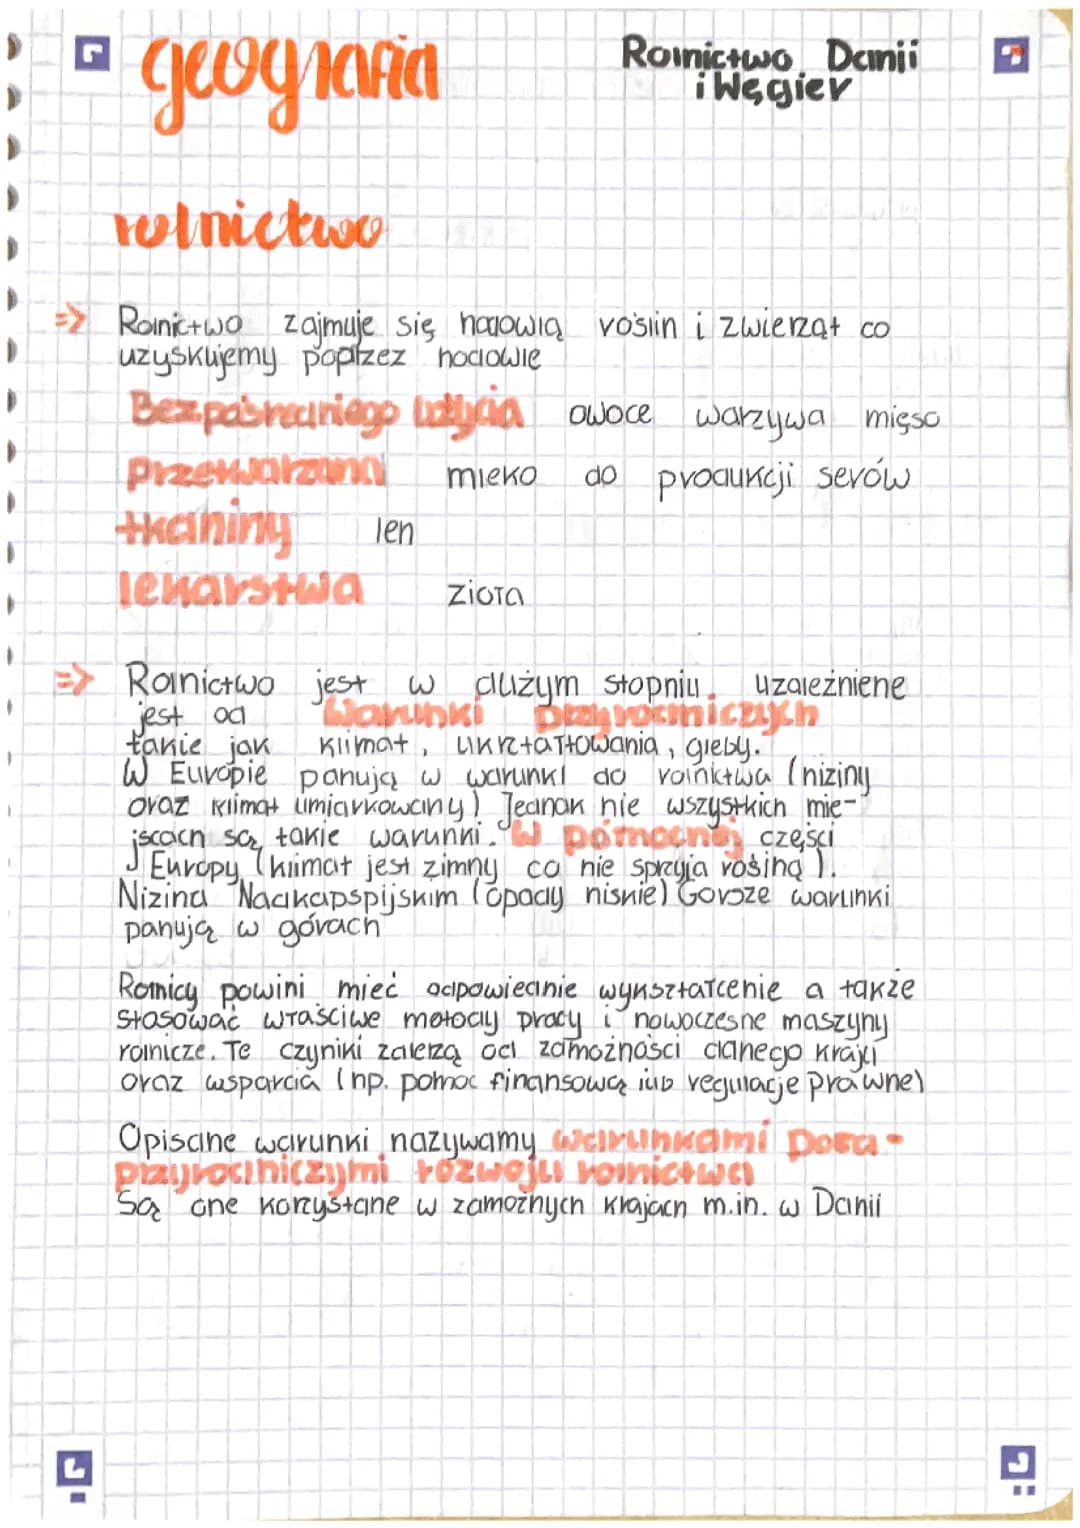 geografia
Rolnictwo Danii
i Węgier
rolnictwo
=> Rolnictwo zajmuje się hodowlą roślin i zwierząt co
uzyskujemy poprzez hodowle
Bezpośredniego użycia owoce warzywa mięso
przetwarzana mleko do produkcji serów
tkaniny len
lekarstwa zioła
=> Rolnictwo jest w dużym stopniu. uzależniene
jest od Warunki przyrodniczych
takie jak klimat, ukrztałtowania, gleby.
W Europie panują w warunki do rolnktwa (niziny
oraz klimat umiarkowany) Jednak nie wszystkich mie-
jscach są takie warunki. W północnej części
Europy (klimat jest zimny co nie sprzyja rośliną).
Nizina Nadkapspijskim (opady niskie) Gorsze warunki
panują w górach
Rolnicy powini mieć odpowiednie wykształcenie a także
stosować właściwe metody pracy i nowoczesne maszyny
rolnicze. Te czyniki zależą od zamożności danego kraju
oraz wsparcia (np. pomoc finansową lub regulacje prawne)
Opisane warunki nazywamy warunkami poza-
przyrodniczymi rozwoju rolnictwa
Są one korzystane w zamożnych krajach m.in. w Danii